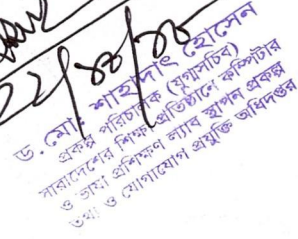 ২২/১০/১৮
ড. মো. শাহাদাৎ হোসেন
প্রকল্প পরিচালক (যুগ্মসচিব)
সারাদেশের শিক্ষা প্রতিষ্ঠানে কম্পিউটার
ও ভাষা প্রশিক্ষণ ল্যাব স্থাপন প্রকল্প
তথ্য ও যোগাযোগ প্রযুক্তি অধিদপ্তর